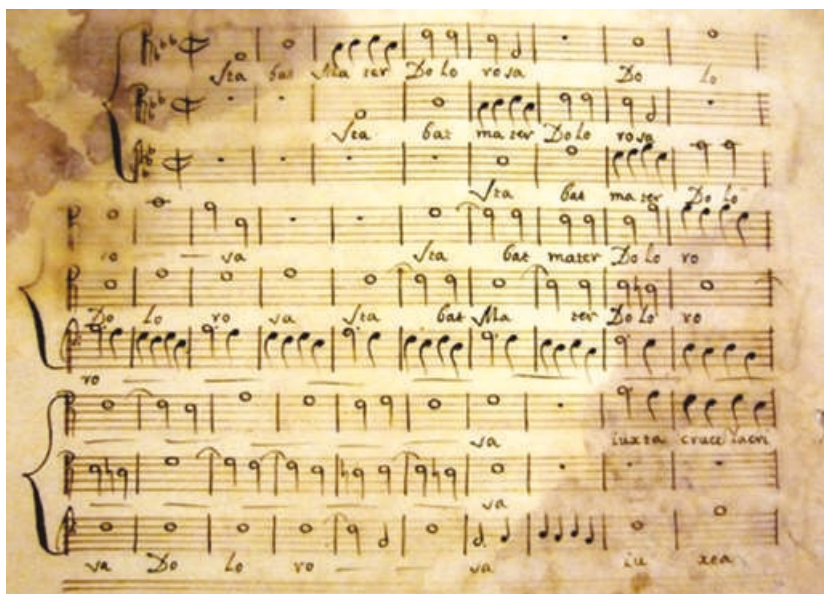 Sta bat Ma ter Do lo ro sa Do lo
Sta bat ma ter Do lo ro sa
Sta bat ma ter Do lo
ro sa Sta bat mater Do lo ro
Do lo ro sa Sta bat Ma ter Do lo ro
ro
sa iuxta cruce lacri
sa
sa Do lo ro sa iu xta